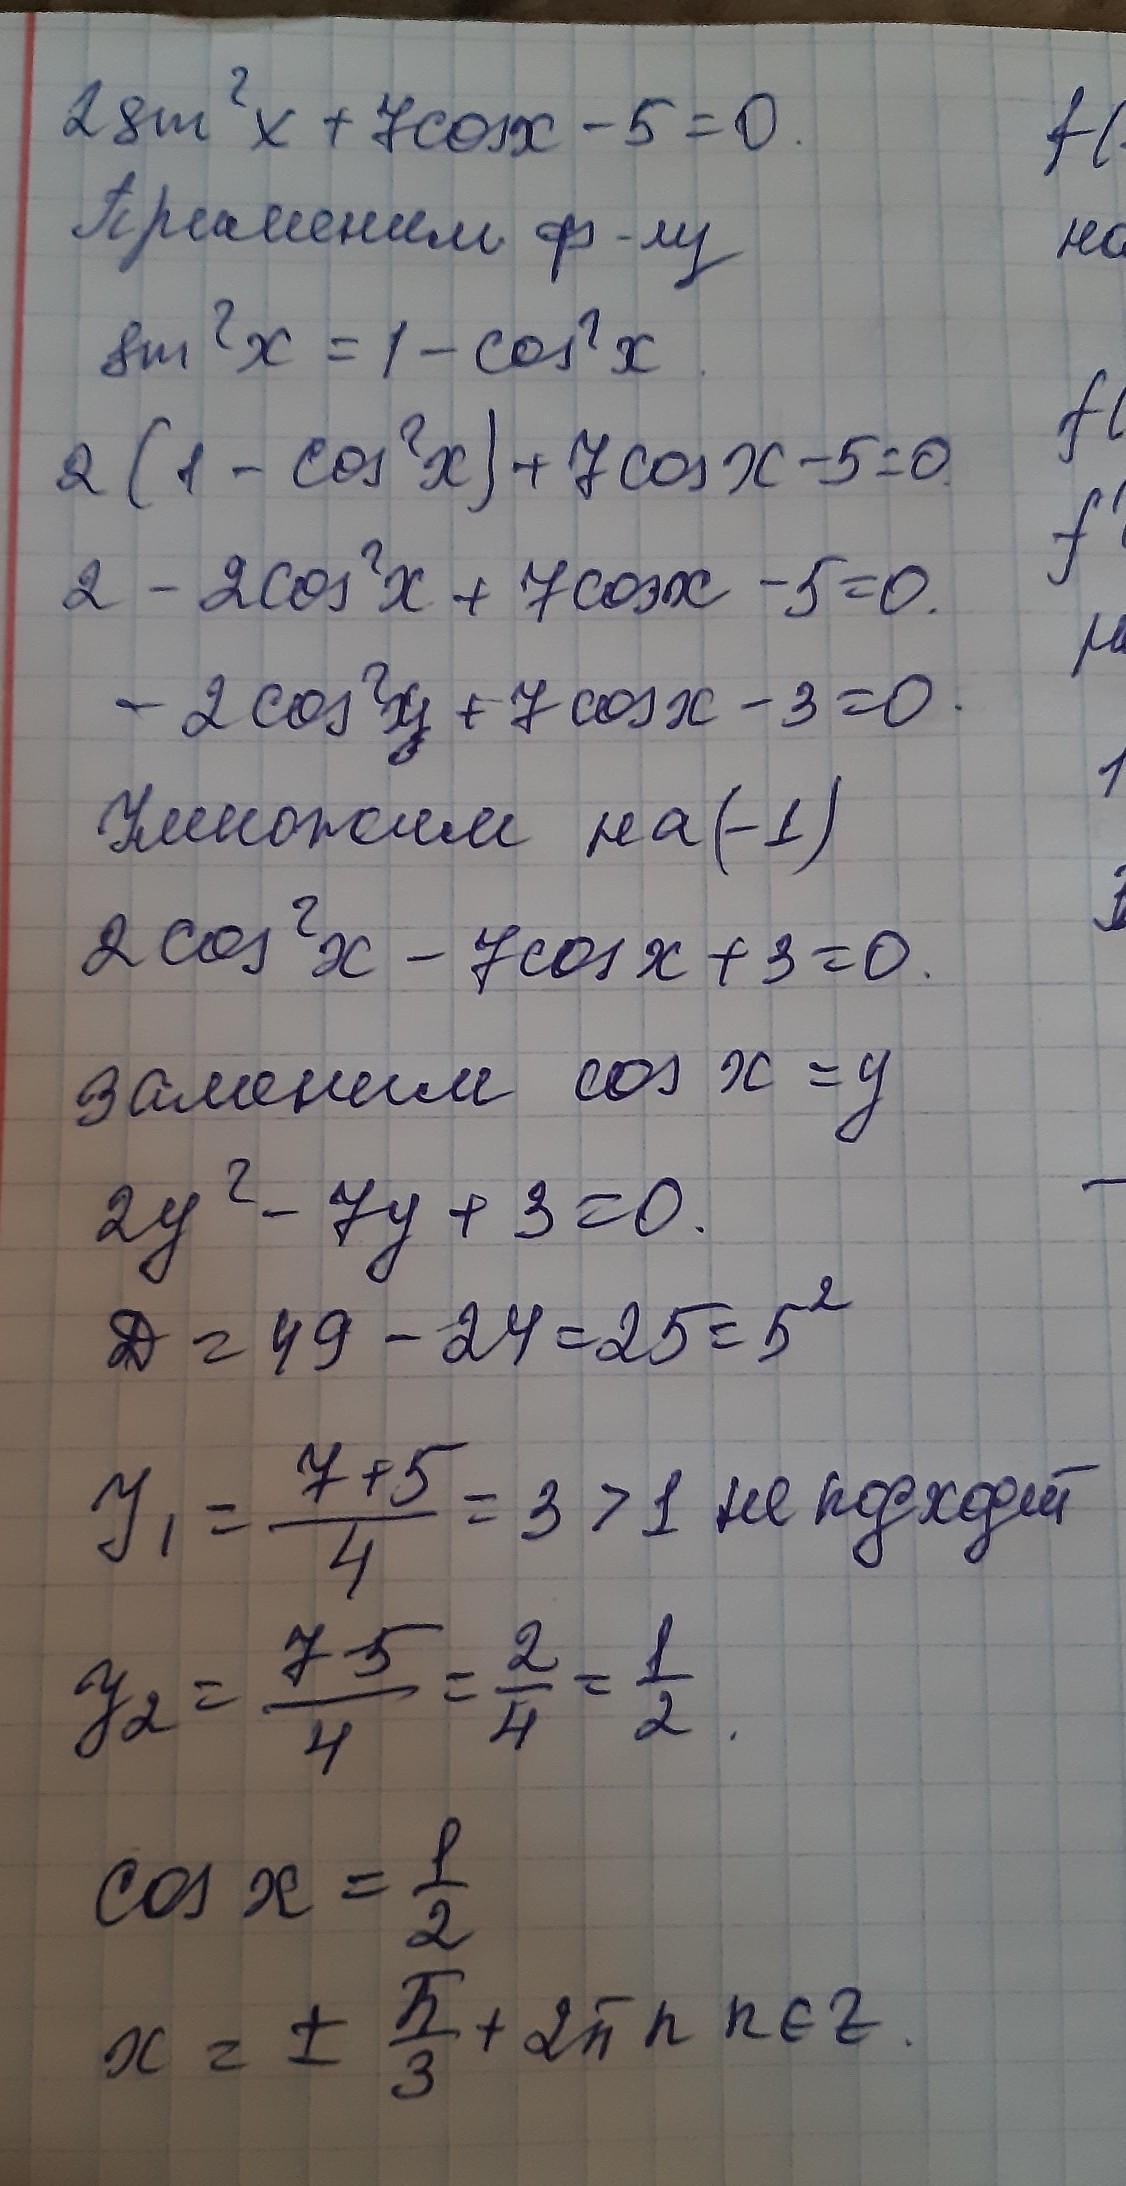 2sin²x + 7cosx - 5 = 0.
Применим ф-лу
sin²x = 1 - cos²x.
2(1 - cos²x) + 7cosx - 5 = 0.
2 - 2cos²x + 7cosx - 5 = 0.
- 2cos²x + 7cosx - 3 = 0.
Умножим на (-1)
2cos²x - 7cosx + 3 = 0.
Заменим cos x = y
2y² - 7y + 3 = 0.
D = 49 - 24 = 25 = 5²
y₁ = (7+5)/4 = 3 > 1 не подходит
y₂ = (7-5)/4 = 2/4 = 1/2.
cos x = 1/2
x = ± π/3 + 2πn n∈Z.
f(
на
f(
f'(
1